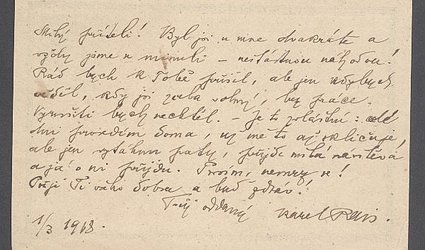 Milý příteli! Byl jsi u mne dvakráte a
vždy jsme se minuli – nešťastnou náhodou!
Rád bych k Tobě přišel, ale jen kdybych
věděl, kdy jsi zcela volný, bez práce.
Vyrušiti bych nechtěl. – Je to zvláštní: celé
dni prosedím doma, už mě to až skličuje,
ale jen vytáhnu paty, přijde milá návštěva
a já o ni přijdu. Prosím, nemrz se!
Přeji Ti všeho dobra a buď zdráv!
Tvůj oddaný
Karel Rais.
1/3 1918.